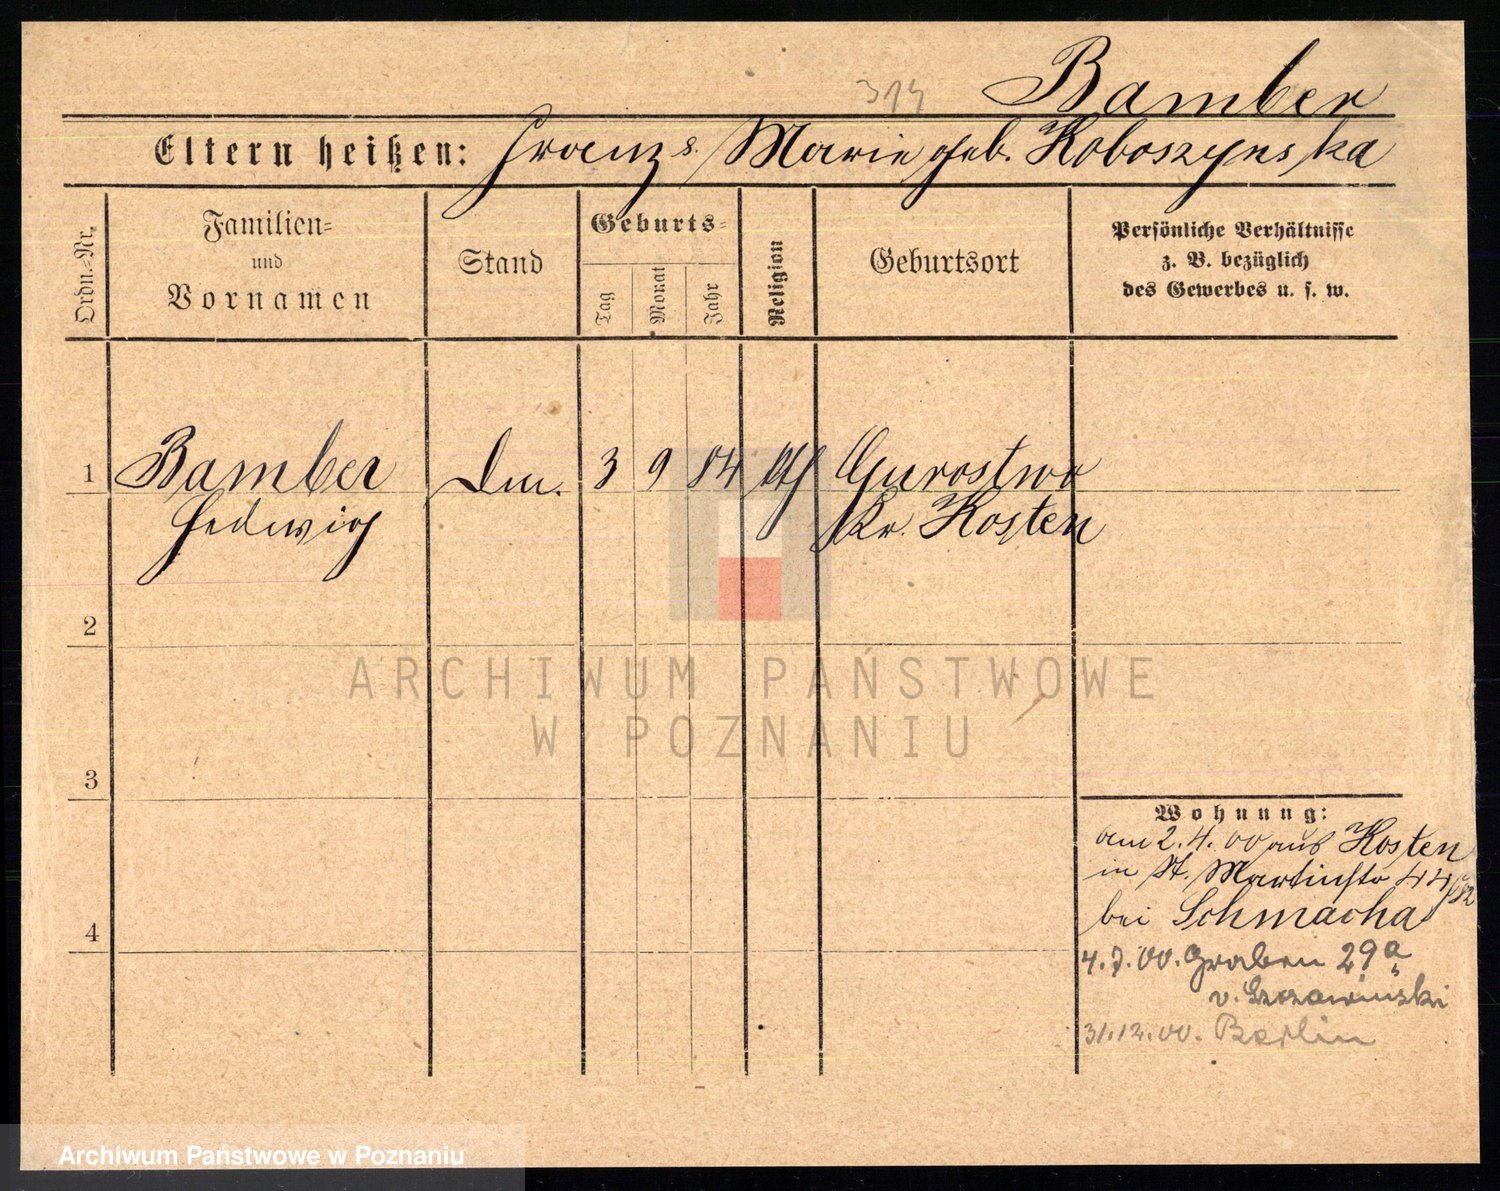 Bamber
314
Eltern heißen: Franz & Marie geb. Koboszynska
Ordn.-Nr.
Familien- und Vornamen
Stand
Geburts-
Tag
Monat
Jahr
Religion
Geburtsort
Persönliche Verhältnisse
z. B. bezüglich
des Gewerbes u. s. w.
1 Bamber 3 9 84 kth Gurostwo
Hedwig Kr. Kosten
2
3
4
Wohnung:
am 2.4.00 aus Kosten
in St. Martinstr 44
bei Schmacha
4.7.00. Graben 29a
v.
31.12.00. Berlin
ARCHIWUM PAŃSTWOWE
W POZNANIU
Archiwum Państwowe w Poznaniu